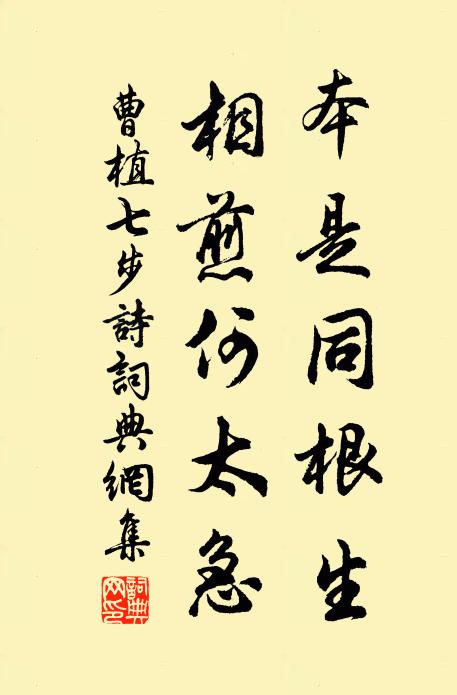 本是同根生
相煎何太急
曹植七步詩詞典網集
詞典
网印